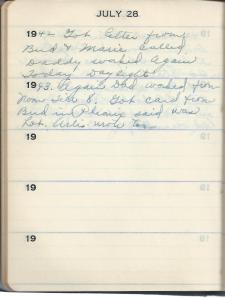 JULY 28
1942 Got letter from
Bud & Marie called
Daddy worked again
today. Way eight!
1943. Again Dad worked from
Noon till 8. Got card from
Bud in Phoenix said was
hot. Arlis wrote too
19
19
19